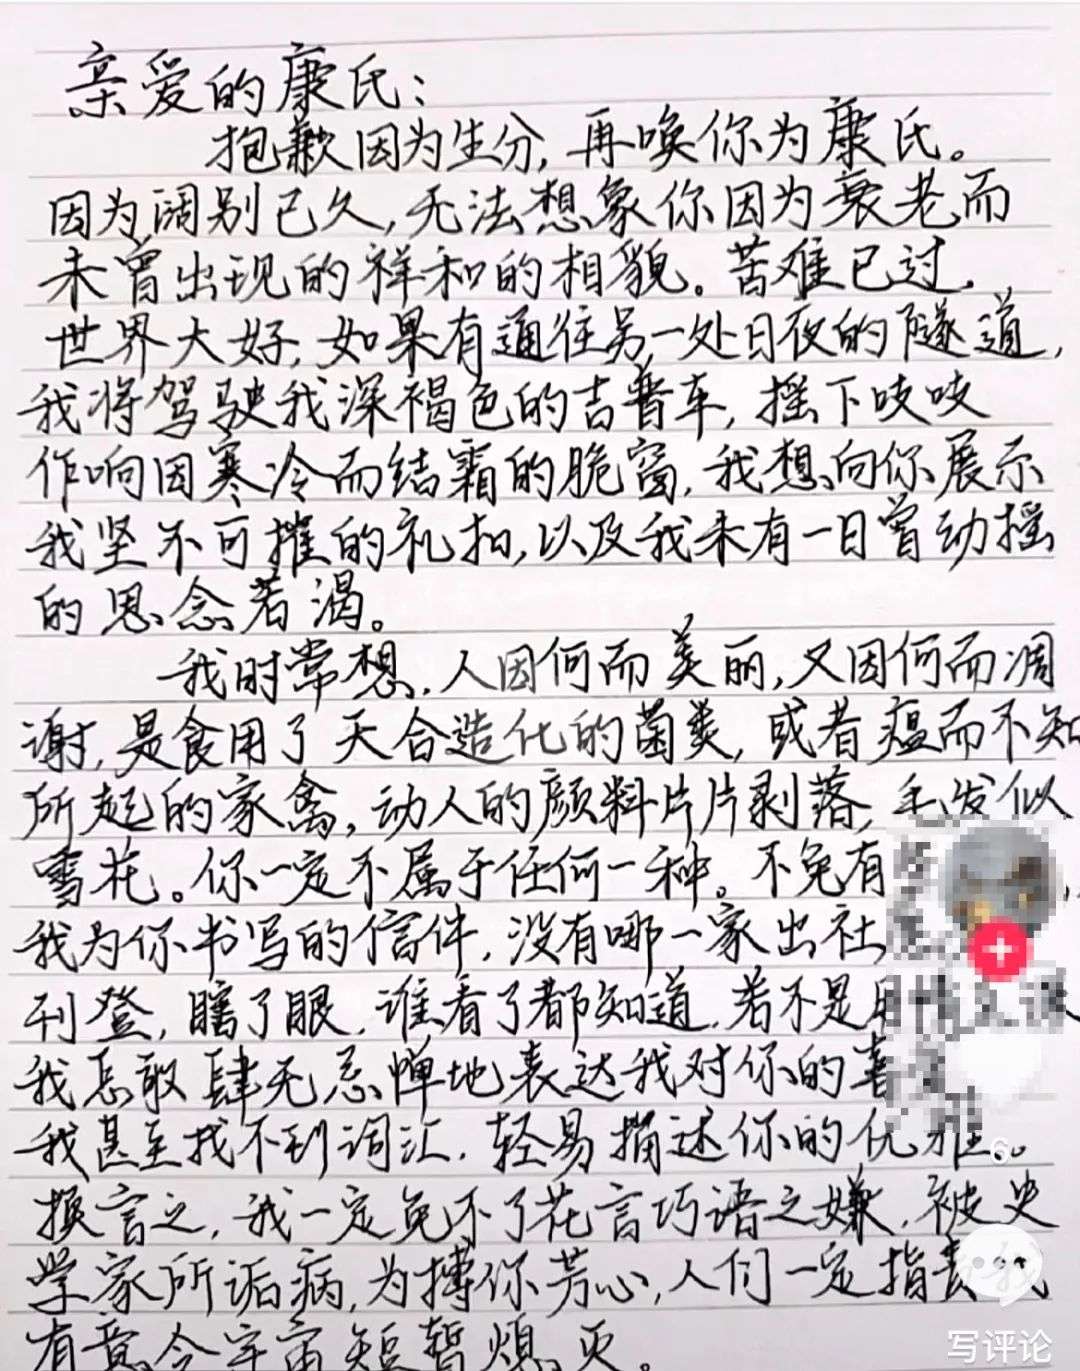 亲爱的康氏：
抱歉因为生分，再唤你为康氏。
因为阔别已久，无法想象你因为衰老而
未曾出现的祥和的相貌。苦难已过，
世界大好，如果有通往另一处日夜的隧道，
我将驾驶我深褐色的吉普车，摇下吱吱
作响因寒冷而结霜的脆窗，我想向你展示
我坚不可摧的礼和，以及我未有一日曾动摇
的思念若渴。
我时常想，人因何而美丽，又因何而凋
谢，是食用了天合造化的菌类，或者瘟而不知
所起的家禽，动人的颜料片片剥落，毛发似
雪花。你一定不属于任何一种。不免有
我为你书写的信件，没有哪一家出社
刊登，瞎了眼，谁看了都知道，若不是
我怎敢肆无忌惮地表达我对你的喜
我甚至找不到词汇，轻易描述你的优雅。
换言之，我一定免不了花言巧语之嫌，被史
学家所诟病，为搏你芳心，人们一定指责我
有意令宇宙短暂熄灭。
写评论